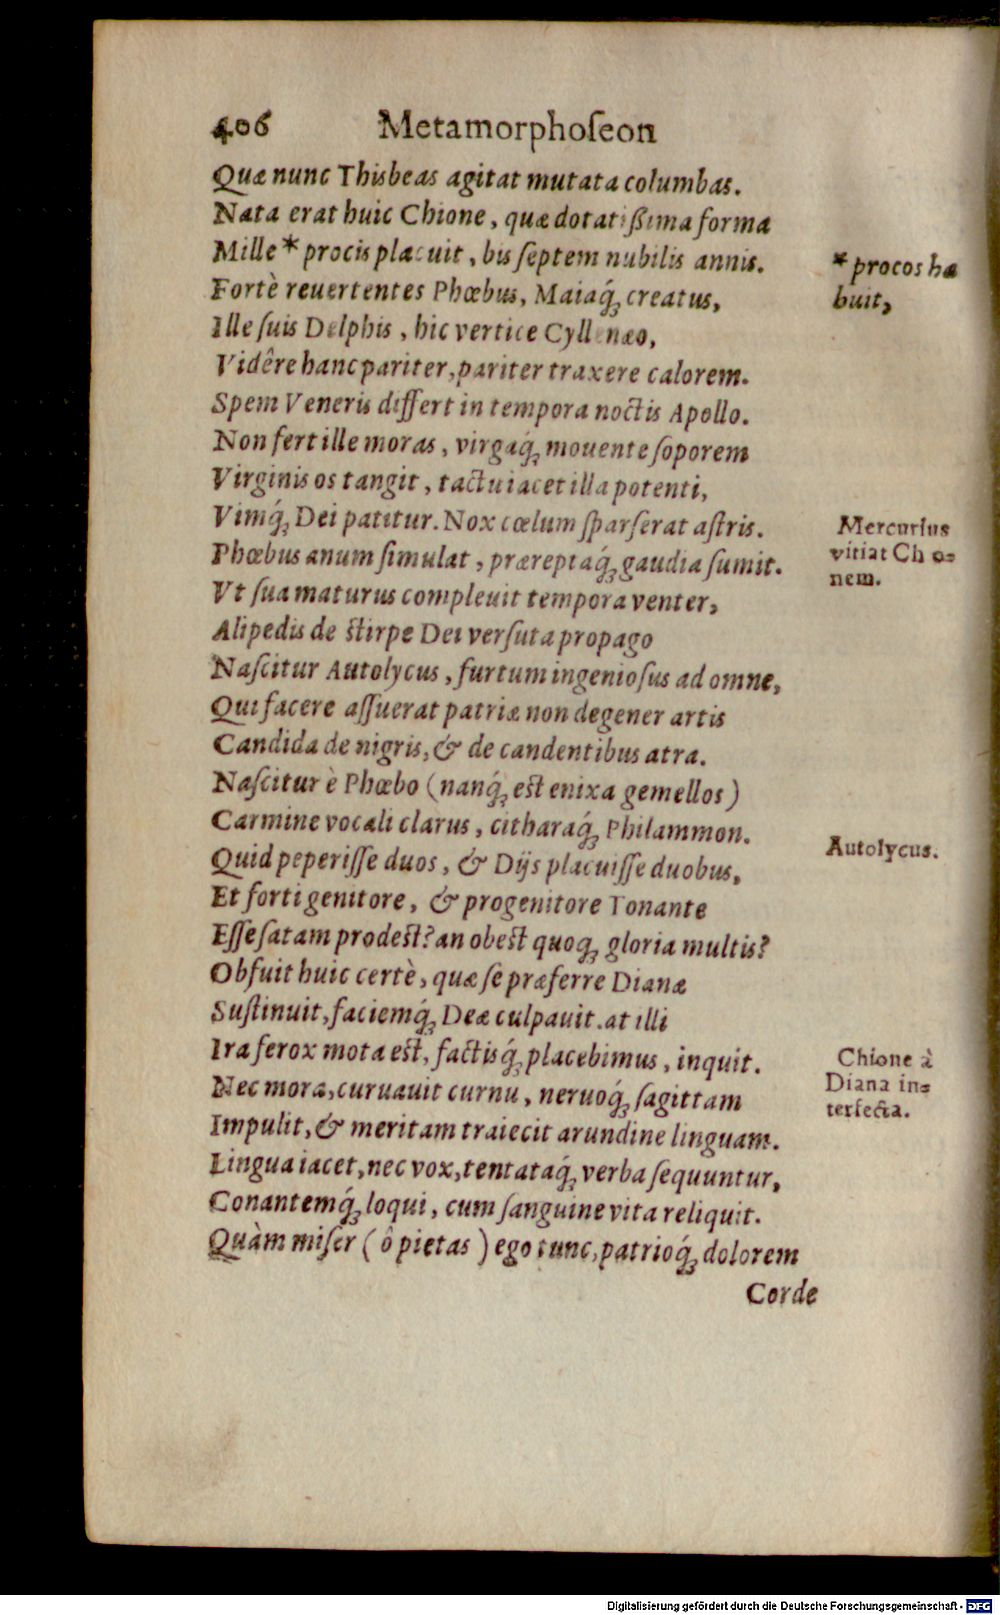 406 Metamorphoſeon
Quæ nunc Thisbeas agitat mutata columbas.
Nata erat huic Chione, quæ dotatißima forma
Mille * procis placuit, bis ſeptem nubilis annis.
* procos ha
buit,
Fortè reuertentes Phœbus, Maiaq́ꝫ creatus,
Ille ſuis Delphis, hic vertice Cyllenæo,
Vidêre hanc pariter, pariter traxere calorem.
Spem Veneris differt in tempora noctis Apollo.
Non fert ille moras, virgaq́ꝫ mouente ſoporem
Virginis os tangit, tactu iacet illa potenti,
Vimq́ꝫ Dei patitur. Nox cœlum ſparſerat aſtris.
Mercurius
vitiat Ch o⸗
nem.
Phœbus anum ſimulat, præreptaq́ꝫ gaudia ſumit.
Vt ſua maturus compleuit tempora venter,
Alipedis de ſtirpe Dei verſuta propago
Naſcitur Autolycus, furtum ingenioſus ad omne,
Qui facere aſſuerat patriæ non degener artis
Candida de nigris, & de candentibus atra.
Naſcitur è Phœbo (nanq́ꝫ eſt enixa gemellos)
Carmine vocali clarus, citharaq́ꝫ Philammon.
Autolycus.
Quid peperiſſe duos, & Dijs placuiſſe duobus,
Et forti genitore, & progenitore Tonante
Eſſe ſatam prodeſt? an obeſt quoqꝫ gloria multis?
Obfuit huic certè, quæ ſe præferre Dianæ
Suſtinuit, faciemq́ꝫ Deæ culpauit. at illi
Ira ferox mota eſt, factisq́ꝫ placebimus, inquit.
Chione à
Diana in⸗
terfecta.
Nec mora, curuauit curnu, neruoq́ꝫ ſagittam
Impulit, & meritam traiecit arundine linguam.
Lingua iacet, nec vox, tentataq́ꝫ verba ſequuntur,
Conantemq́ꝫ loqui, cum ſanguine vita reliquit.
Quàm miſer (ô pietas) ego tunc, patrioq́ꝫ dolorem
Corde
Digitalisierung gefördert durch die Deutsche Forschungsgemeinschaft - DFG